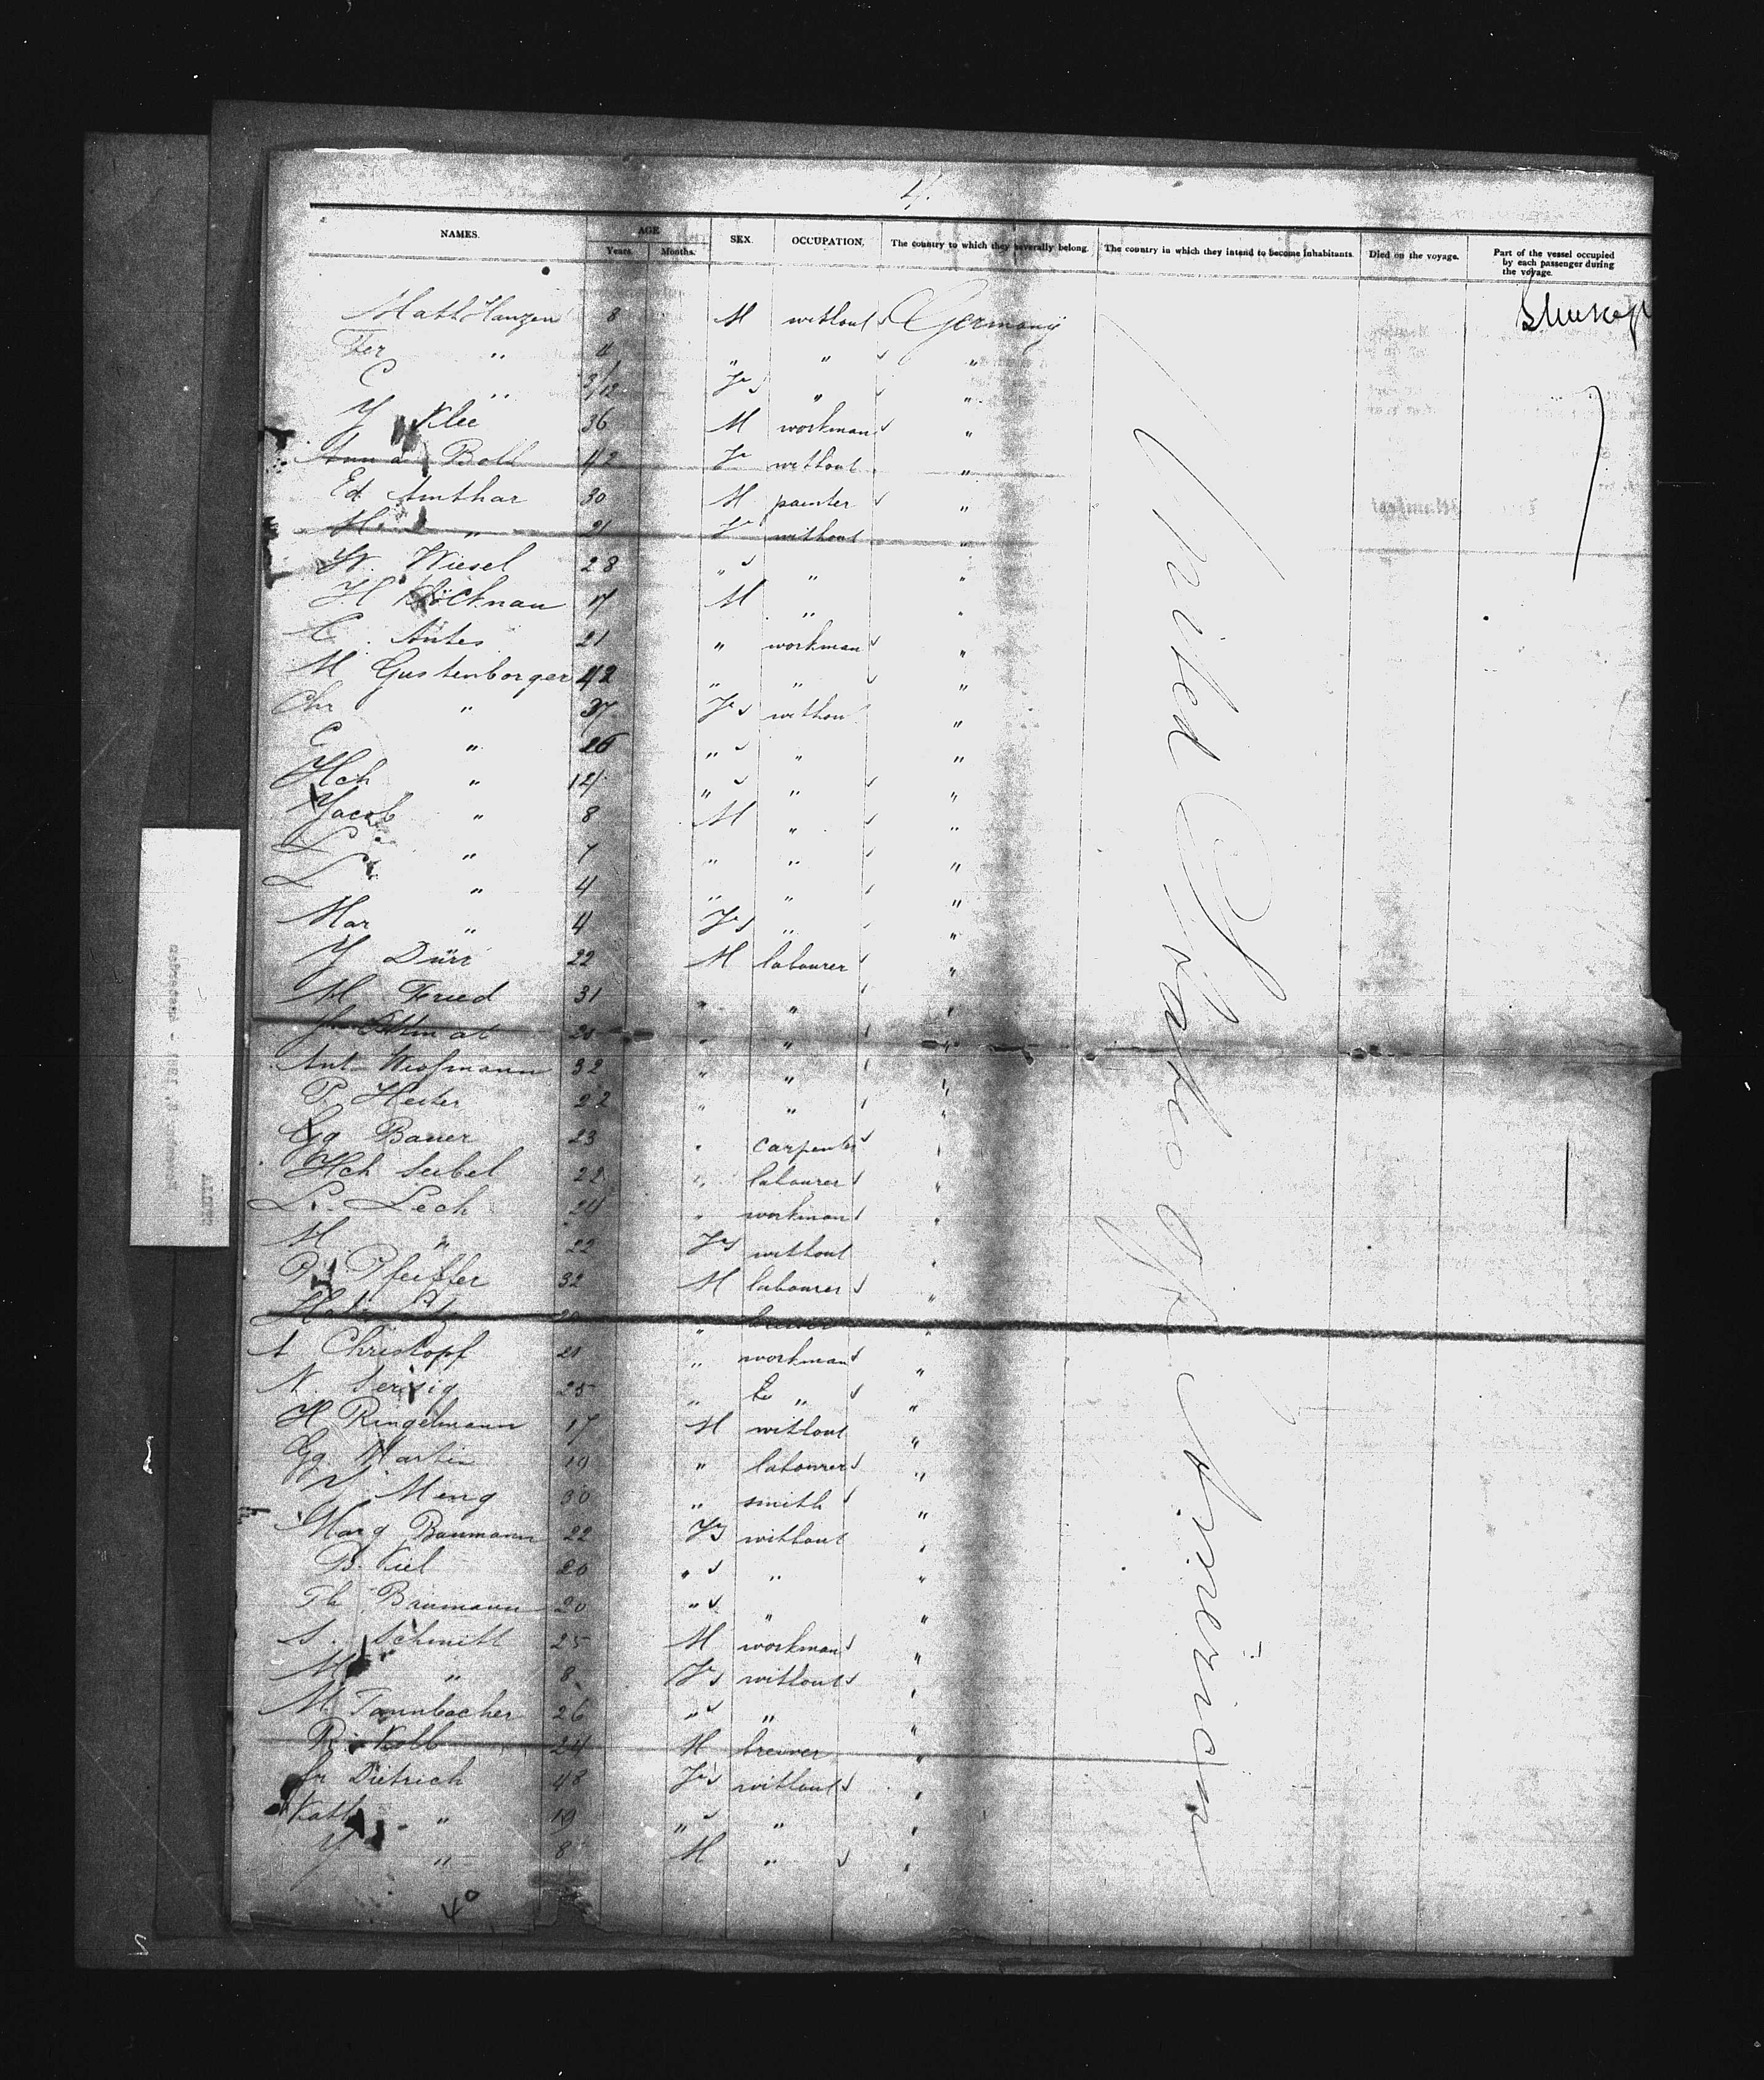 4.
NAMES. AGE SEX. OCCUPATION, The country to which they severally belong. The country in which they intend to become inhabitants. Died on the voyage. Part of the vessel occupied by each passenger during the voyage.
Years. Months.
Math Hanzen 8 M without Germany
Fer " 4 " " "
C " 3/12 " "
Y Klee 36 M workman "
Anna Boll 42 without "
Ed. Amthar 30 M painter "
M. " 21 without "
W. Wiesel 28 " " "
H 17 M " "
C. Antes 21 " workman "
M Gustenborger 42 " " "
Chr " 37 without "
C " 26 " " "
Hch " 14 " " "
Yacob " 8 M " "
L " 7 " " "
L " 4 " " "
Mar " 4 " "
Y Dürr 22 M labourer "
M. Fried 31 " " "
20 " " "
Ant. 32 " " "
P. Hecker 22 " " "
Gg Bauer 23 " carpenter "
Hch Seibel 22 " labourer "
L. Lech 24 " workman "
M. " 22 without "
P. Pfeiffer 32 M labourer "
" brewer "
A Christopf 21 " workman "
N. 25 " " "
H. Ringelmann 17 M without "
Gg. Martin 19 " labourer "
Meng 30 " smith "
Marg Baumann 22 without "
B. Kiel 20 " " "
Th Baumann 20 " " "
S. Schmitt 25 M workman "
M " 8 without "
M. Tannbacher 26 " " "
R. Kolb 24 M brewer "
Fr Dietrich 48 without "
Kath " 19 " " "
Y " 8 M " "
40
United States of America